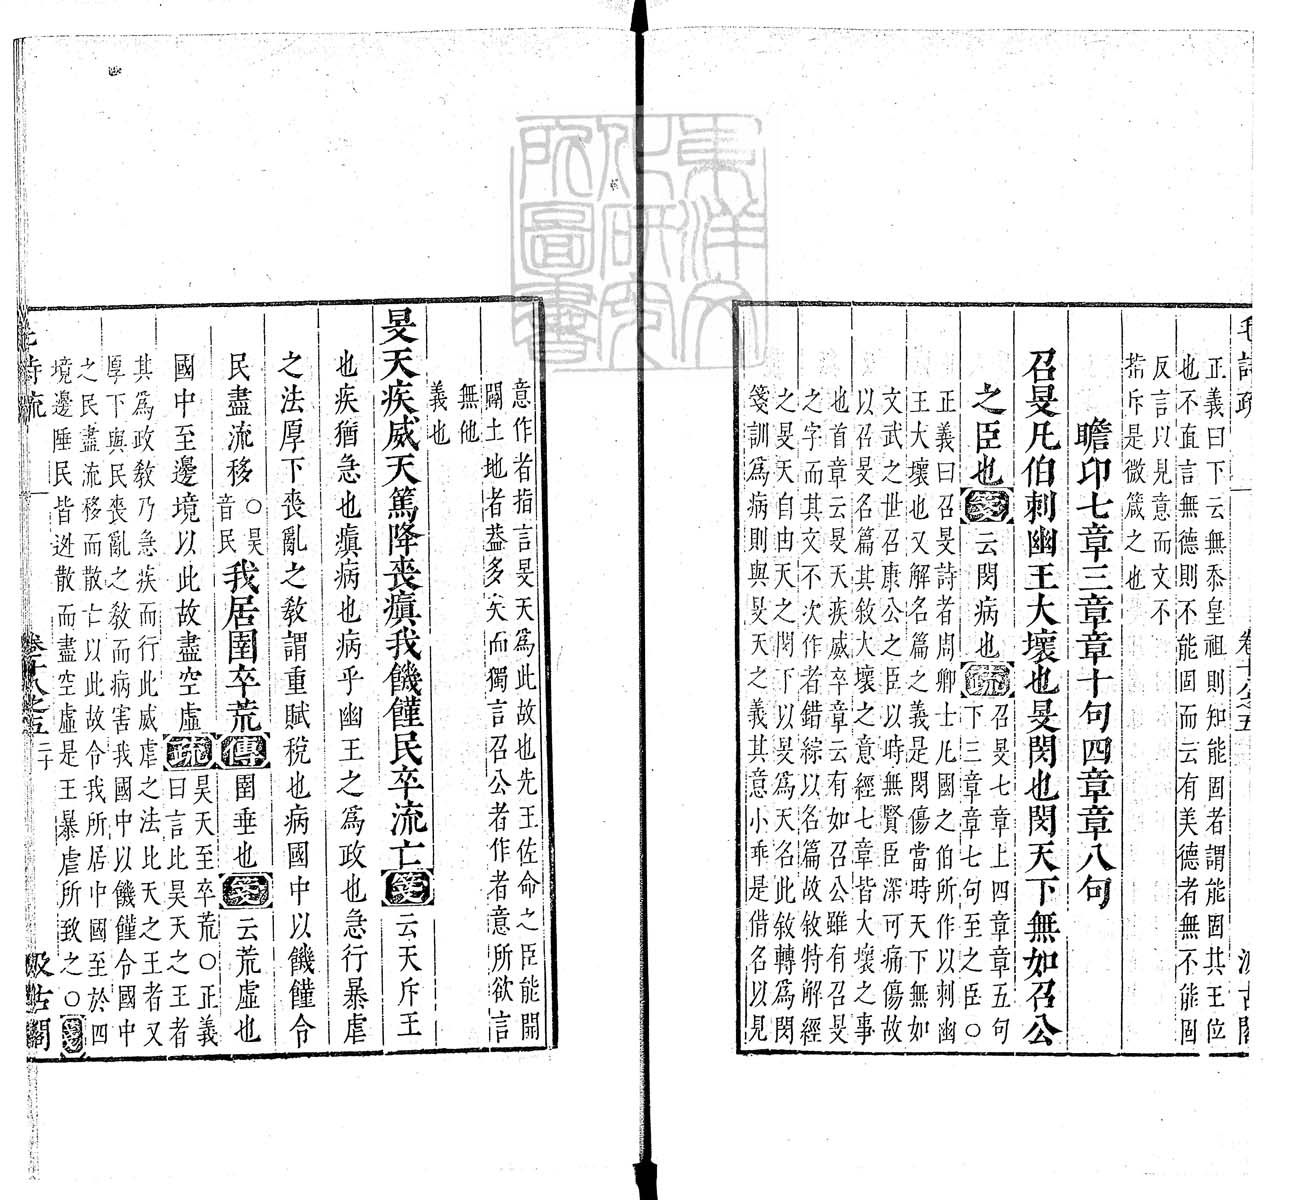 毛詩疏
卷十八之五
汲古閣
正義曰下云無忝皇祖則知能固者謂能固其王位
也不直言無德則不能固而云有美德者無不能固
反言以見意而文不
指斥是微箴之也
瞻卬七章三章章十句四章章八句
召旻凡伯刺幽王大壞也旻閔也閔天下無如召公
之臣也箋云閔病也疏召旻七章上四章章五句
下三章章七句至之臣〇
正義曰召旻詩者周卿士凡國之伯所作以刺幽
王大壞也又解名篇之義是閔傷當時天下無如
文武之世召康公之臣以時無賢臣深可痛傷故
以召旻名篇其敘大壞之意經七章皆大壞之事
也首章云旻天疾威卒章云有如召公雖有召旻
之字而其文不次作者錯綜以名篇故敘特解經
之旻天自由天之閔下以旻爲天名此敘轉爲閔
箋訓爲病則與旻天之義其意小乖是借名以見
意作者指言旻天爲此故也先王佐命之臣能開
闢土地者葢多矣而獨言召公者作者意所欲言
無他
義也
旻天疾威天篤降喪瘨我饑饉民卒流亡箋云天斥王
也疾猶急也瘨病也病乎幽王之爲政也急行暴虐
之法厚下喪亂之敎謂重賦稅也病國中以饑饉令
民盡流移〇昊
音民我居圉卒荒傳圉垂也箋云荒虛也
國中至邊境以此故盡空虛疏昊天至卒荒〇正義
曰言比昊天之王者
其爲政敎乃急疾而行此威虐之法比天之王者又
厚下與民喪亂之敎而病害我國中以饑饉令國中
之民盡流移而散亡以此故令我所居中國至於四
境邊陲民皆迸散而盡空虛是王暴虐所致之〇箋
毛詩疏
卷十八之五
二十
汲古閣
東洋文
化研究
所圖書